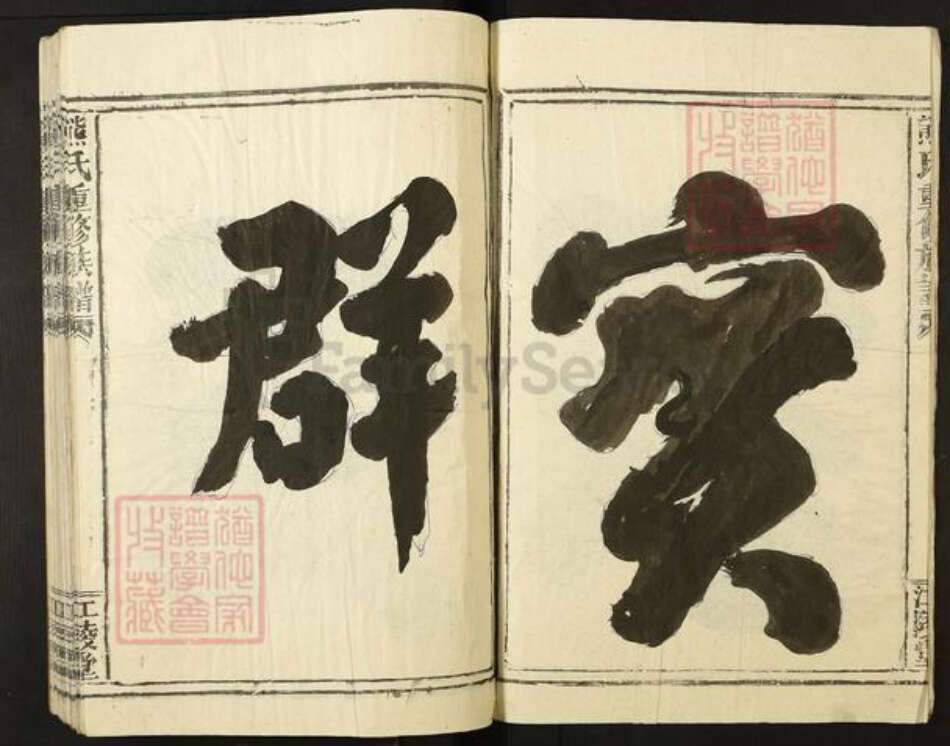 熊氏重修族譜
江陵堂
群
熊氏重修族譜
江陵堂
猶他家譜學會收藏
猶他家譜學會收藏
FamilySearch